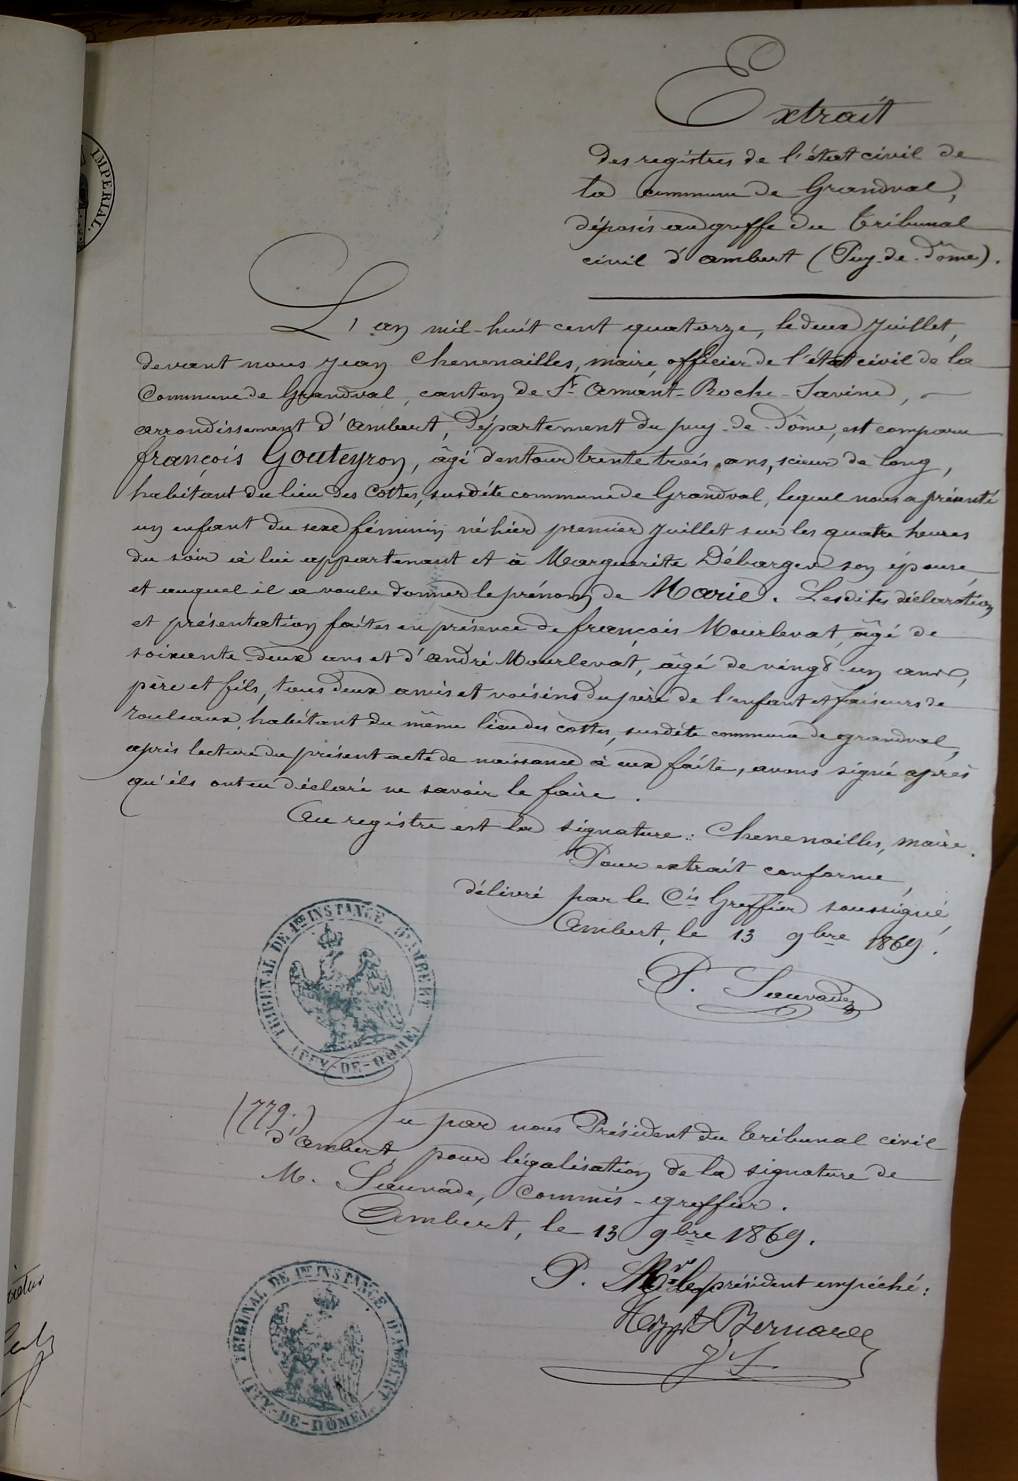 Extrait
des registres de l'état civil de
la commune de Grandval,
déposés au greffe du tribunal
civil d'ambert (Puy-de-Dôme).
L'an mil-huit cent quatorze, le deux juillet,
devant nous Jean Chenenailles, maire, officier de l'état civil de la
Commune de Grandval, canton de St Amant-Roche-Savine,
arrondissement d'ambert, département du puy-de-dôme, est comparu
françois Gouteyron, âgé d'entour trente trois ans, scieur de long,
habitant du lieu des Cottes, susdite commune de Grandval, lequel nous a présenté
un enfant du sexe féminin né hier premier juillet sur les quatre heures
du soir à lui appartenant et à Marguerite Débarges son épouse
et auquel il a voulu donner le prénom de Marie. Lesdites déclaration
et présentation faites en présence de françois Mourlevat, âgé de
soixante-deux ans et d'andré Mourlevat, âgé de vingt-un ans,
père et fils, tous deux amis et voisins du père de l'enfant et faiseurs de
rouleaux, habitant du même lieu des cottes, susdite commune de grandval,
après lecture du présent acte de naissance à eux faite, avons signé après
qu'ils ont eu déclaré ne savoir le faire.
Au registre est la signature: Chenenailles, maire.
Pour extrait conforme,
délivré par le Cis Greffier soussigné,
Ambert, le 13 9bre 1869.
P. Sauvade
TRIBUNAL DE 1re INSTANCE D'AMBERT (PUY-DE-DÔME)
(779.) Vu par nous Président du tribunal civil
d'ambert, pour légalisation de la signature de
M. Sauvade, Commis-greffier.
Ambert, le 13 9bre 1869.
P. Mr le président empêché:
Bernard
TRIBUNAL DE 1re INSTANCE D'AMBERT (PUY-DE-DÔME)
IMPERIAL.